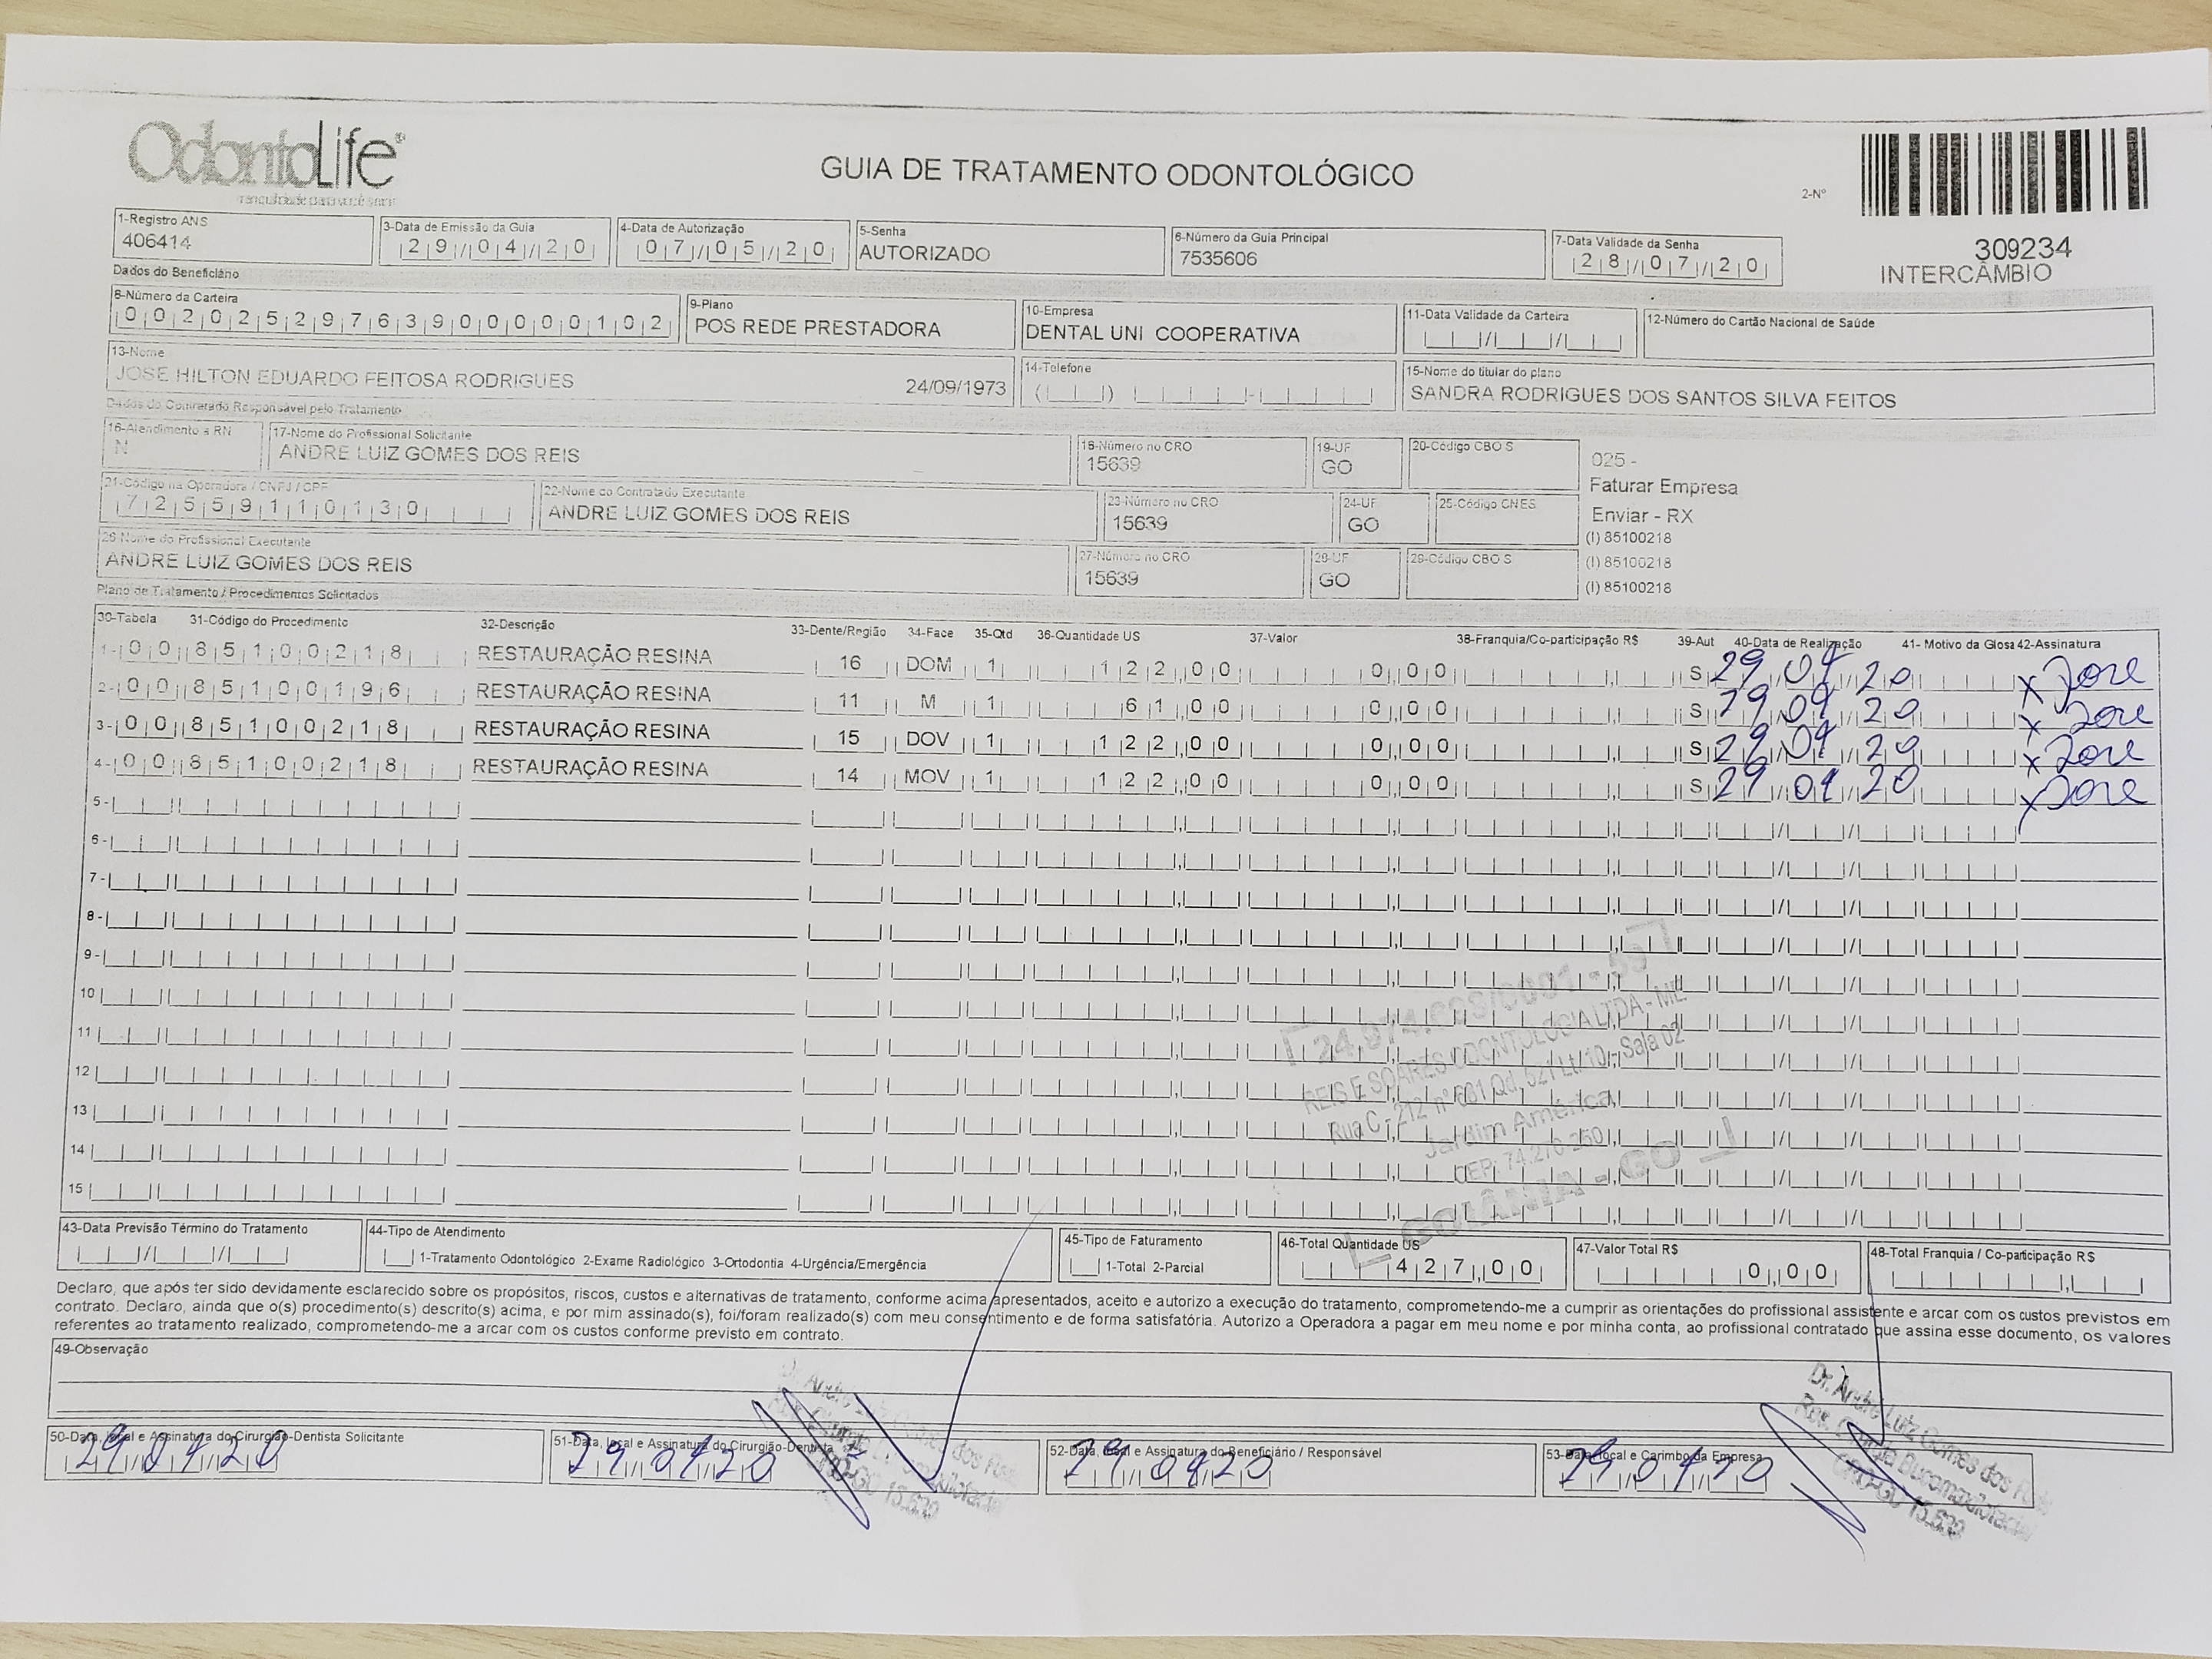 OdontoLife
tranquilidade para você sorrir
GUIA DE TRATAMENTO ODONTOLÓGICO
2-Nº
309234
INTERCÂMBIO
1-Registro ANS
406414
3-Data de Emissão da Guia
29/04/20
4-Data de Autorização
07/05/20
5-Senha
AUTORIZADO
6-Número da Guia Principal
7535606
7-Data Validade da Senha
28/07/20
Dados do Beneficiário
8-Número da Carteira
00202529763900000102
9-Plano
POS REDE PRESTADORA
10-Empresa
DENTAL UNI COOPERATIVA
11-Data Validade da Carteira
12-Número do Cartão Nacional de Saúde
13-Nome
JOSE HILTON EDUARDO FEITOSA RODRIGUES 24/09/1973
14-Telefone
15-Nome do titular do plano
SANDRA RODRIGUES DOS SANTOS SILVA FEITOS
Dados do Contratado Responsável pelo Tratamento
16-Atendimento a RN
N
17-Nome do Profissional Solicitante
ANDRE LUIZ GOMES DOS REIS
18-Número no CRO
15639
19-UF
GO
20-Código CBO S
025 -
Faturar Empresa
Enviar - RX
(I) 85100218
(I) 85100218
(I) 85100218
21-Código na Operadora / CNPJ / CPF
72559110130
22-Nome do Contratado Executante
ANDRE LUIZ GOMES DOS REIS
23-Número no CRO
15639
24-UF
GO
25-Código CNES
26-Nome do Profissional Executante
ANDRE LUIZ GOMES DOS REIS
27-Número no CRO
15639
28-UF
GO
29-Código CBO S
Plano de Tratamento / Procedimentos Solicitados
30-Tabela 31-Código do Procedimento 32-Descrição 33-Dente/Região 34-Face 35-Qtd 36-Quantidade US 37-Valor 38-Franquia/Co-participação R$ 39-Aut 40-Data de Realização 41- Motivo da Glosa 42-Assinatura
1- 00 85100218 RESTAURAÇÃO RESINA 16 DOM 1 122,00 0,00 S 29 04 20 x Jose
2- 00 85100196 RESTAURAÇÃO RESINA 11 M 1 61,00 0,00 S 29 04 20 x Jose
3- 00 85100218 RESTAURAÇÃO RESINA 15 DOV 1 122,00 0,00 S 29 04 20 x Jose
4- 00 85100218 RESTAURAÇÃO RESINA 14 MOV 1 122,00 0,00 S 29 04 20 x Jose
5-
6-
7-
8-
9-
10
11
12
13
14
15
REIS E SOARES ODONTOLOGIA LTDA - ME
Rua C - 212, nº 681 Qd. 527 Lt. 10 - Sala 02
Jardim América
CEP: 74.270-250
GOIÂNIA - GO
43-Data Previsão Término do Tratamento
44-Tipo de Atendimento
1-Tratamento Odontológico 2-Exame Radiológico 3-Ortodontia 4-Urgência/Emergência
45-Tipo de Faturamento
1-Total 2-Parcial
46-Total Quantidade US
427,00
47-Valor Total R$
0,00
48-Total Franquia / Co-participação R$
Declaro, que após ter sido devidamente esclarecido sobre os propósitos, riscos, custos e alternativas de tratamento, conforme acima apresentados, aceito e autorizo a execução do tratamento, comprometendo-me a cumprir as orientações do profissional assistente e arcar com os custos previstos em
contrato. Declaro, ainda que o(s) procedimento(s) descrito(s) acima, e por mim assinado(s), foi/foram realizado(s) com meu consentimento e de forma satisfatória. Autorizo a Operadora a pagar em meu nome e por minha conta, ao profissional contratado que assina esse documento, os valores
referentes ao tratamento realizado, comprometendo-me a arcar com os custos conforme previsto em contrato.
49-Observação
50-Data, local e Assinatura do Cirurgião-Dentista Solicitante
29 04 20
51-Data, local e Assinatura do Cirurgião-Dentista
29 04 20
52-Data, local e Assinatura do Beneficiário / Responsável
29 04 20
53-Data, local e Carimbo da Empresa
29 04 20
Dr. André Luiz Gomes dos Reis
Bucomaxilofacial
CRO-GO 15.639